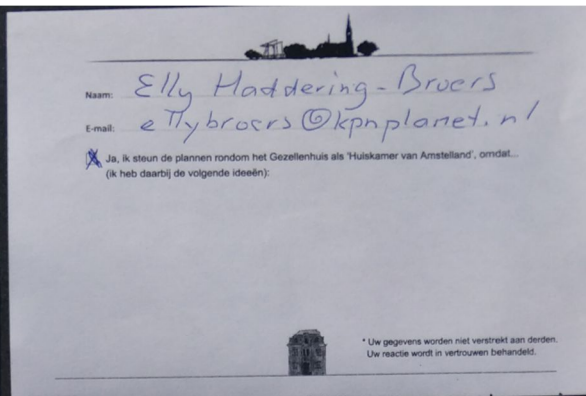 Naam: Elly Haddering - Broers
E-mail: ellybroers@kpnplanet.nl
Ja, ik steun de plannen rondom het Gezellenhuis als 'Huiskamer van Amstelland', omdat...
(ik heb daarbij de volgende ideeën):
* Uw gegevens worden niet verstrekt aan derden.
Uw reactie wordt in vertrouwen behandeld.